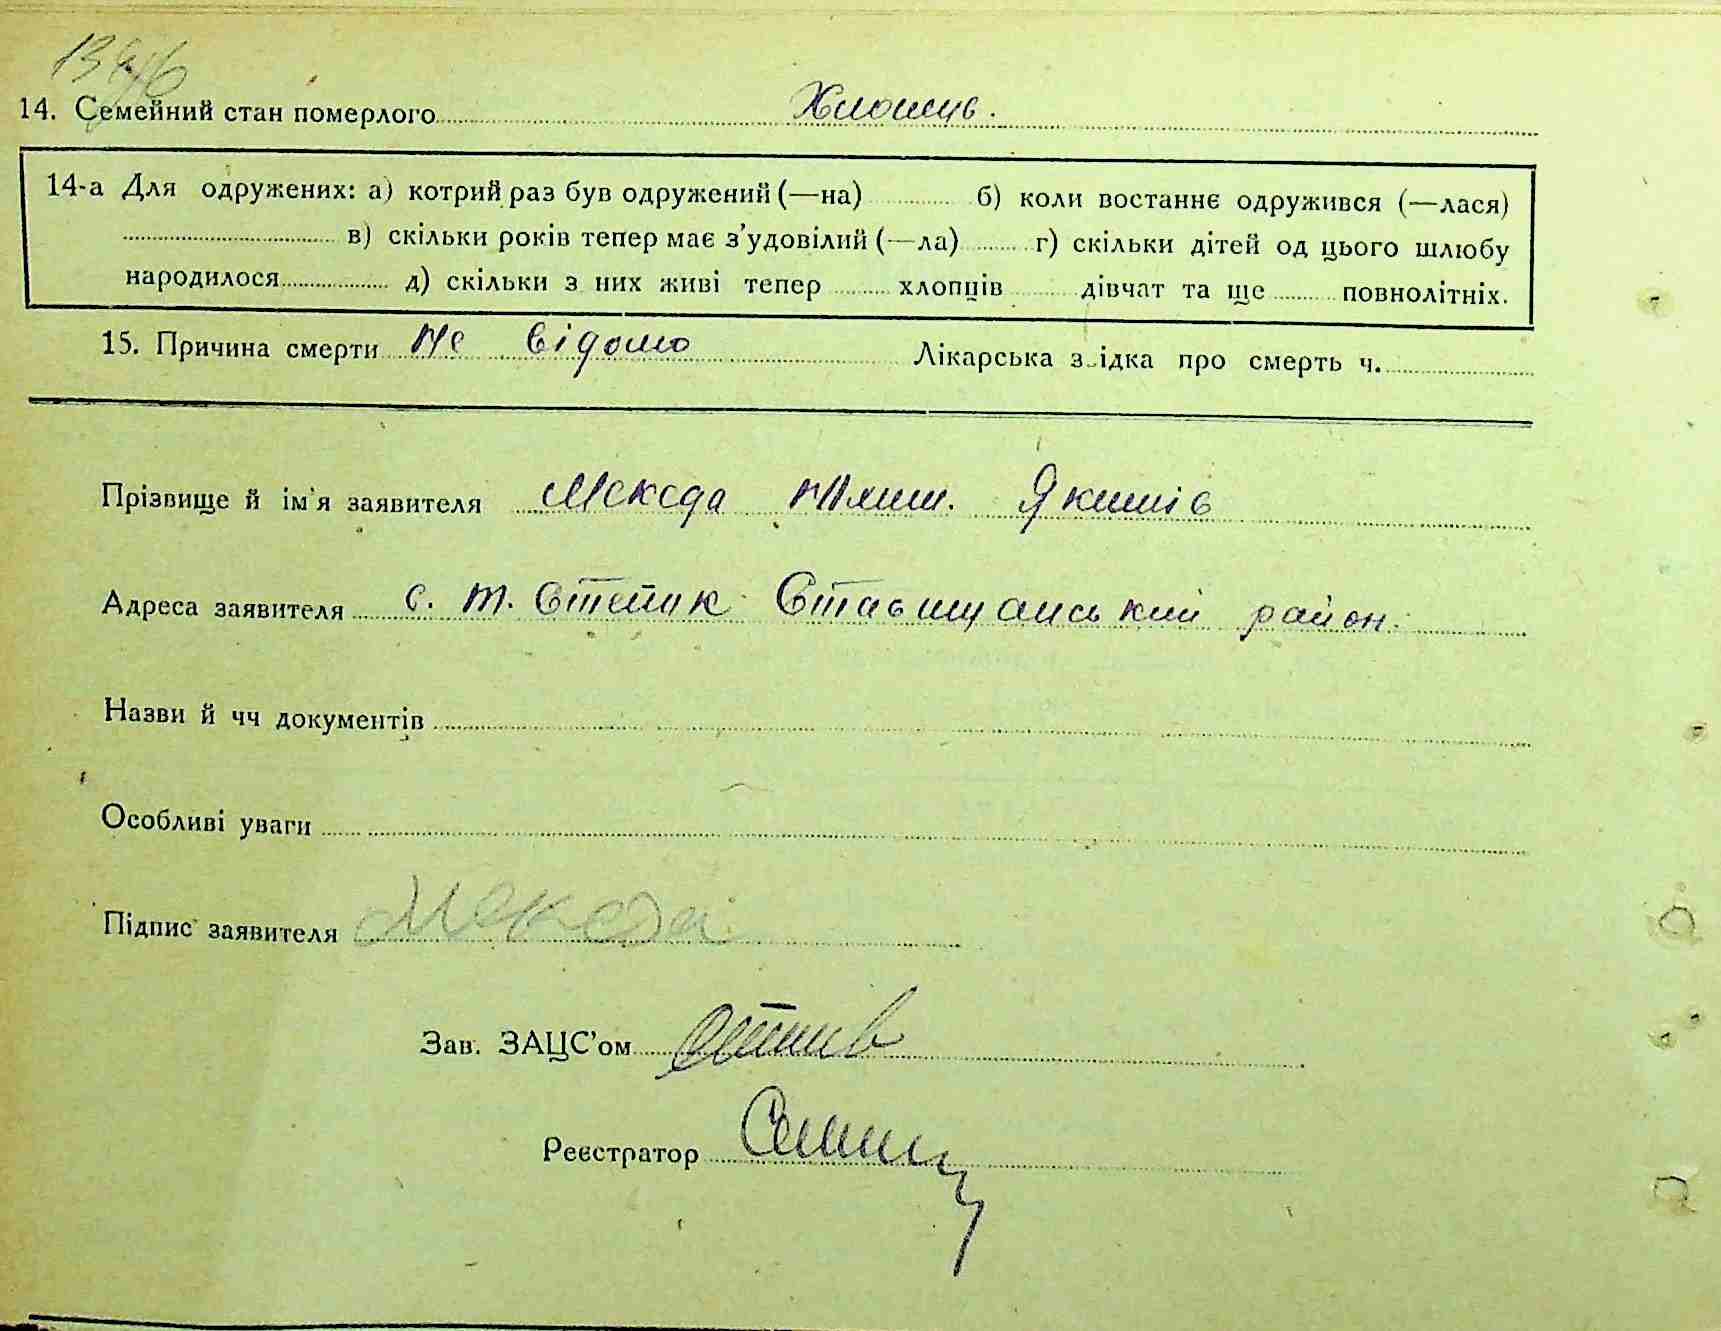 14. Семейний стан померлого Хлопець.
14-а Для одружених: а) котрий раз був одружений (—на) б) коли востаннє одружився (—лася)
в) скільки років тепер має з'удовілий (—ла) г) скільки дітей од цього шлюбу
народилося д) скільки з них живі тепер хлопців дівчат та ще повнолітніх.
15. Причина смерти Не відомо Лікарська з ідка про смерть ч.
Прізвище й ім'я заявителя Мекеда Якимів
Адреса заявителя с. Ставищанський район.
Назви й чч документів
Особливі уваги
Підпис заявителя Мекеда
Зав. ЗАЦС'ом
Реєстратор